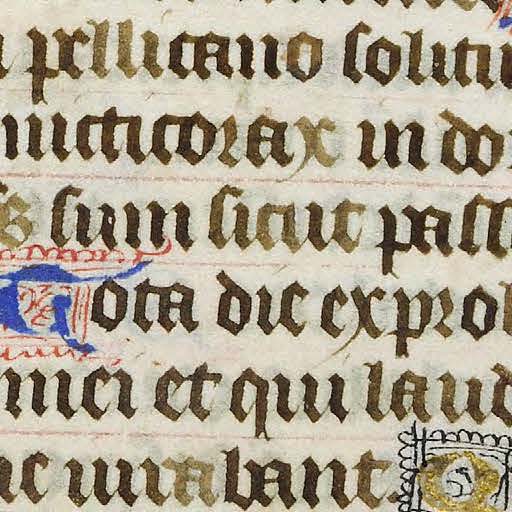 pellicano solitu
nicticorax in do
sum sicut pass
Tota die exprob
mici et qui laud
iurabant.